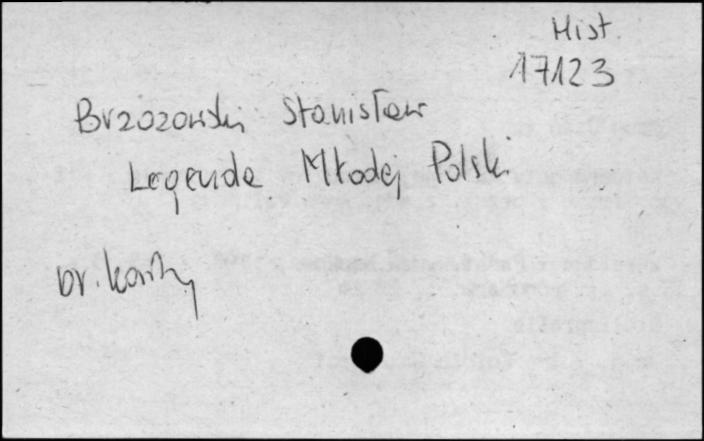 Hist
17123
Brzozowski Stanisław
Legenda Młodej Polski
br. karty